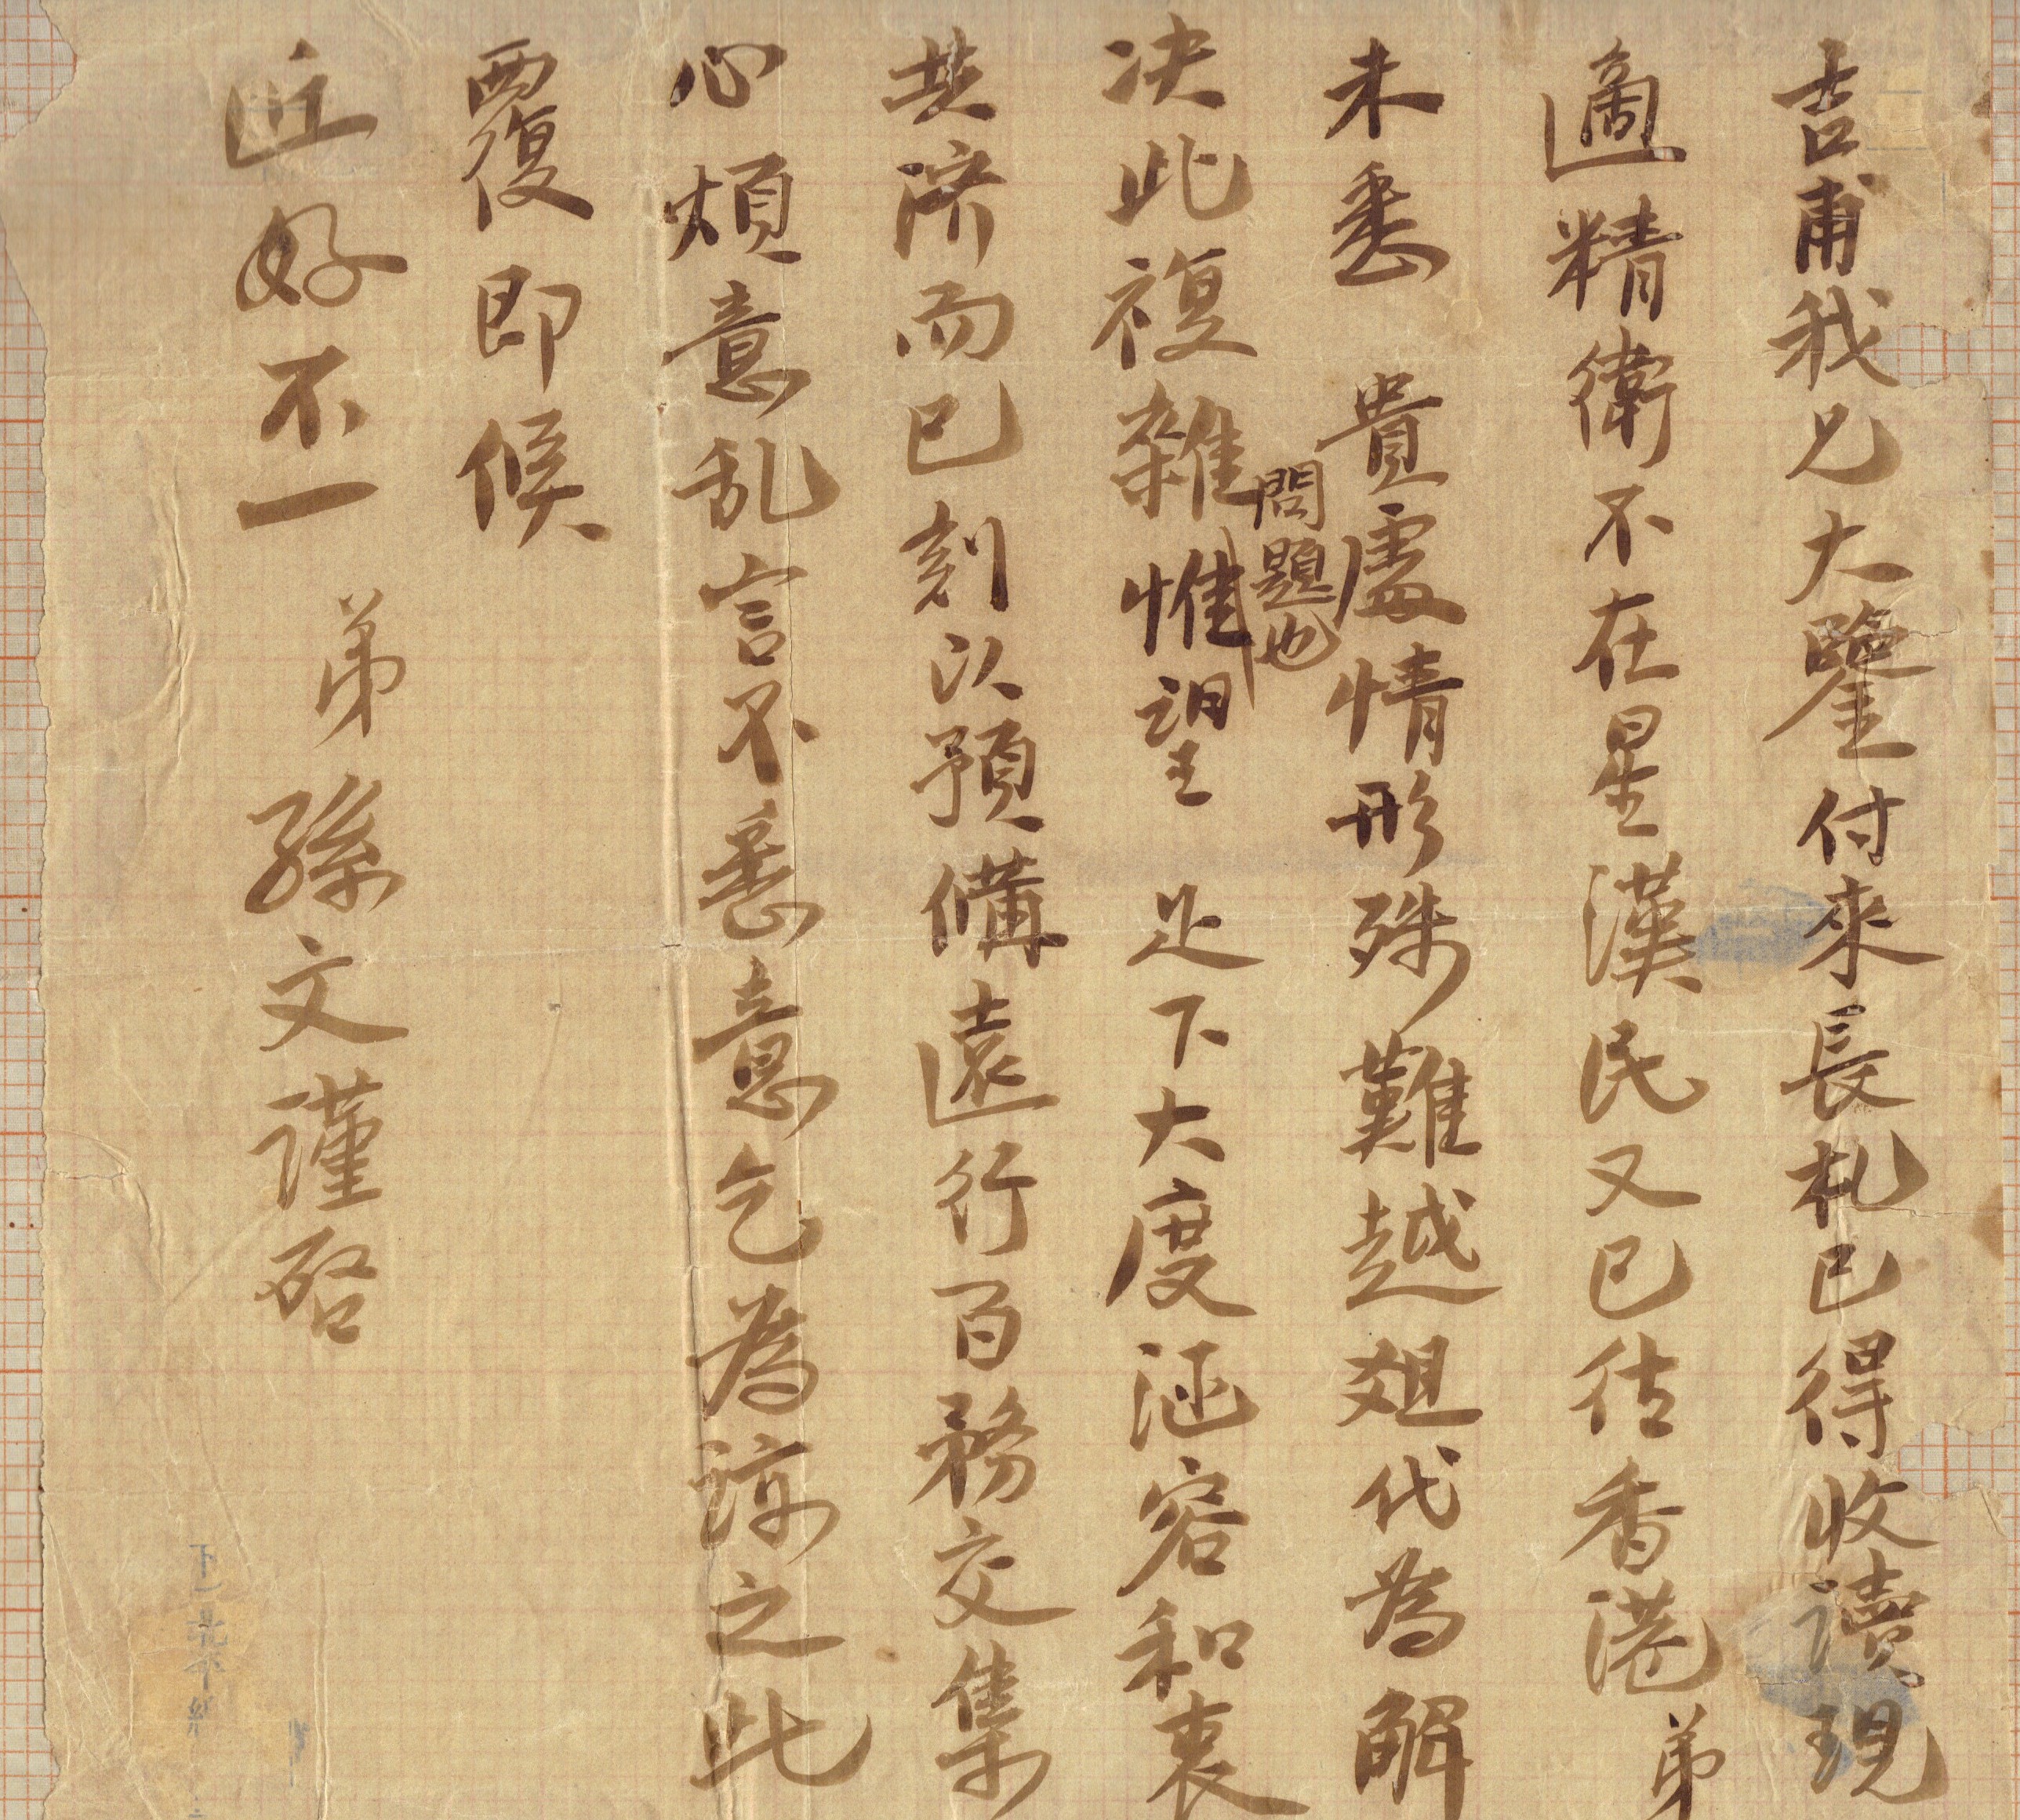 吉甫我兄大鑒付來長札已得收讀現
適精衛不在星漢民又已往香港弟
未悉 貴處情形殊難越俎代為解
決此複雜問題也惟望 足下大度涵容和衷
共濟而已刻以預備遠行百務交集
心煩意乱言不悉意乞為諒之此
覆即候
近好不一 弟孫文謹啓